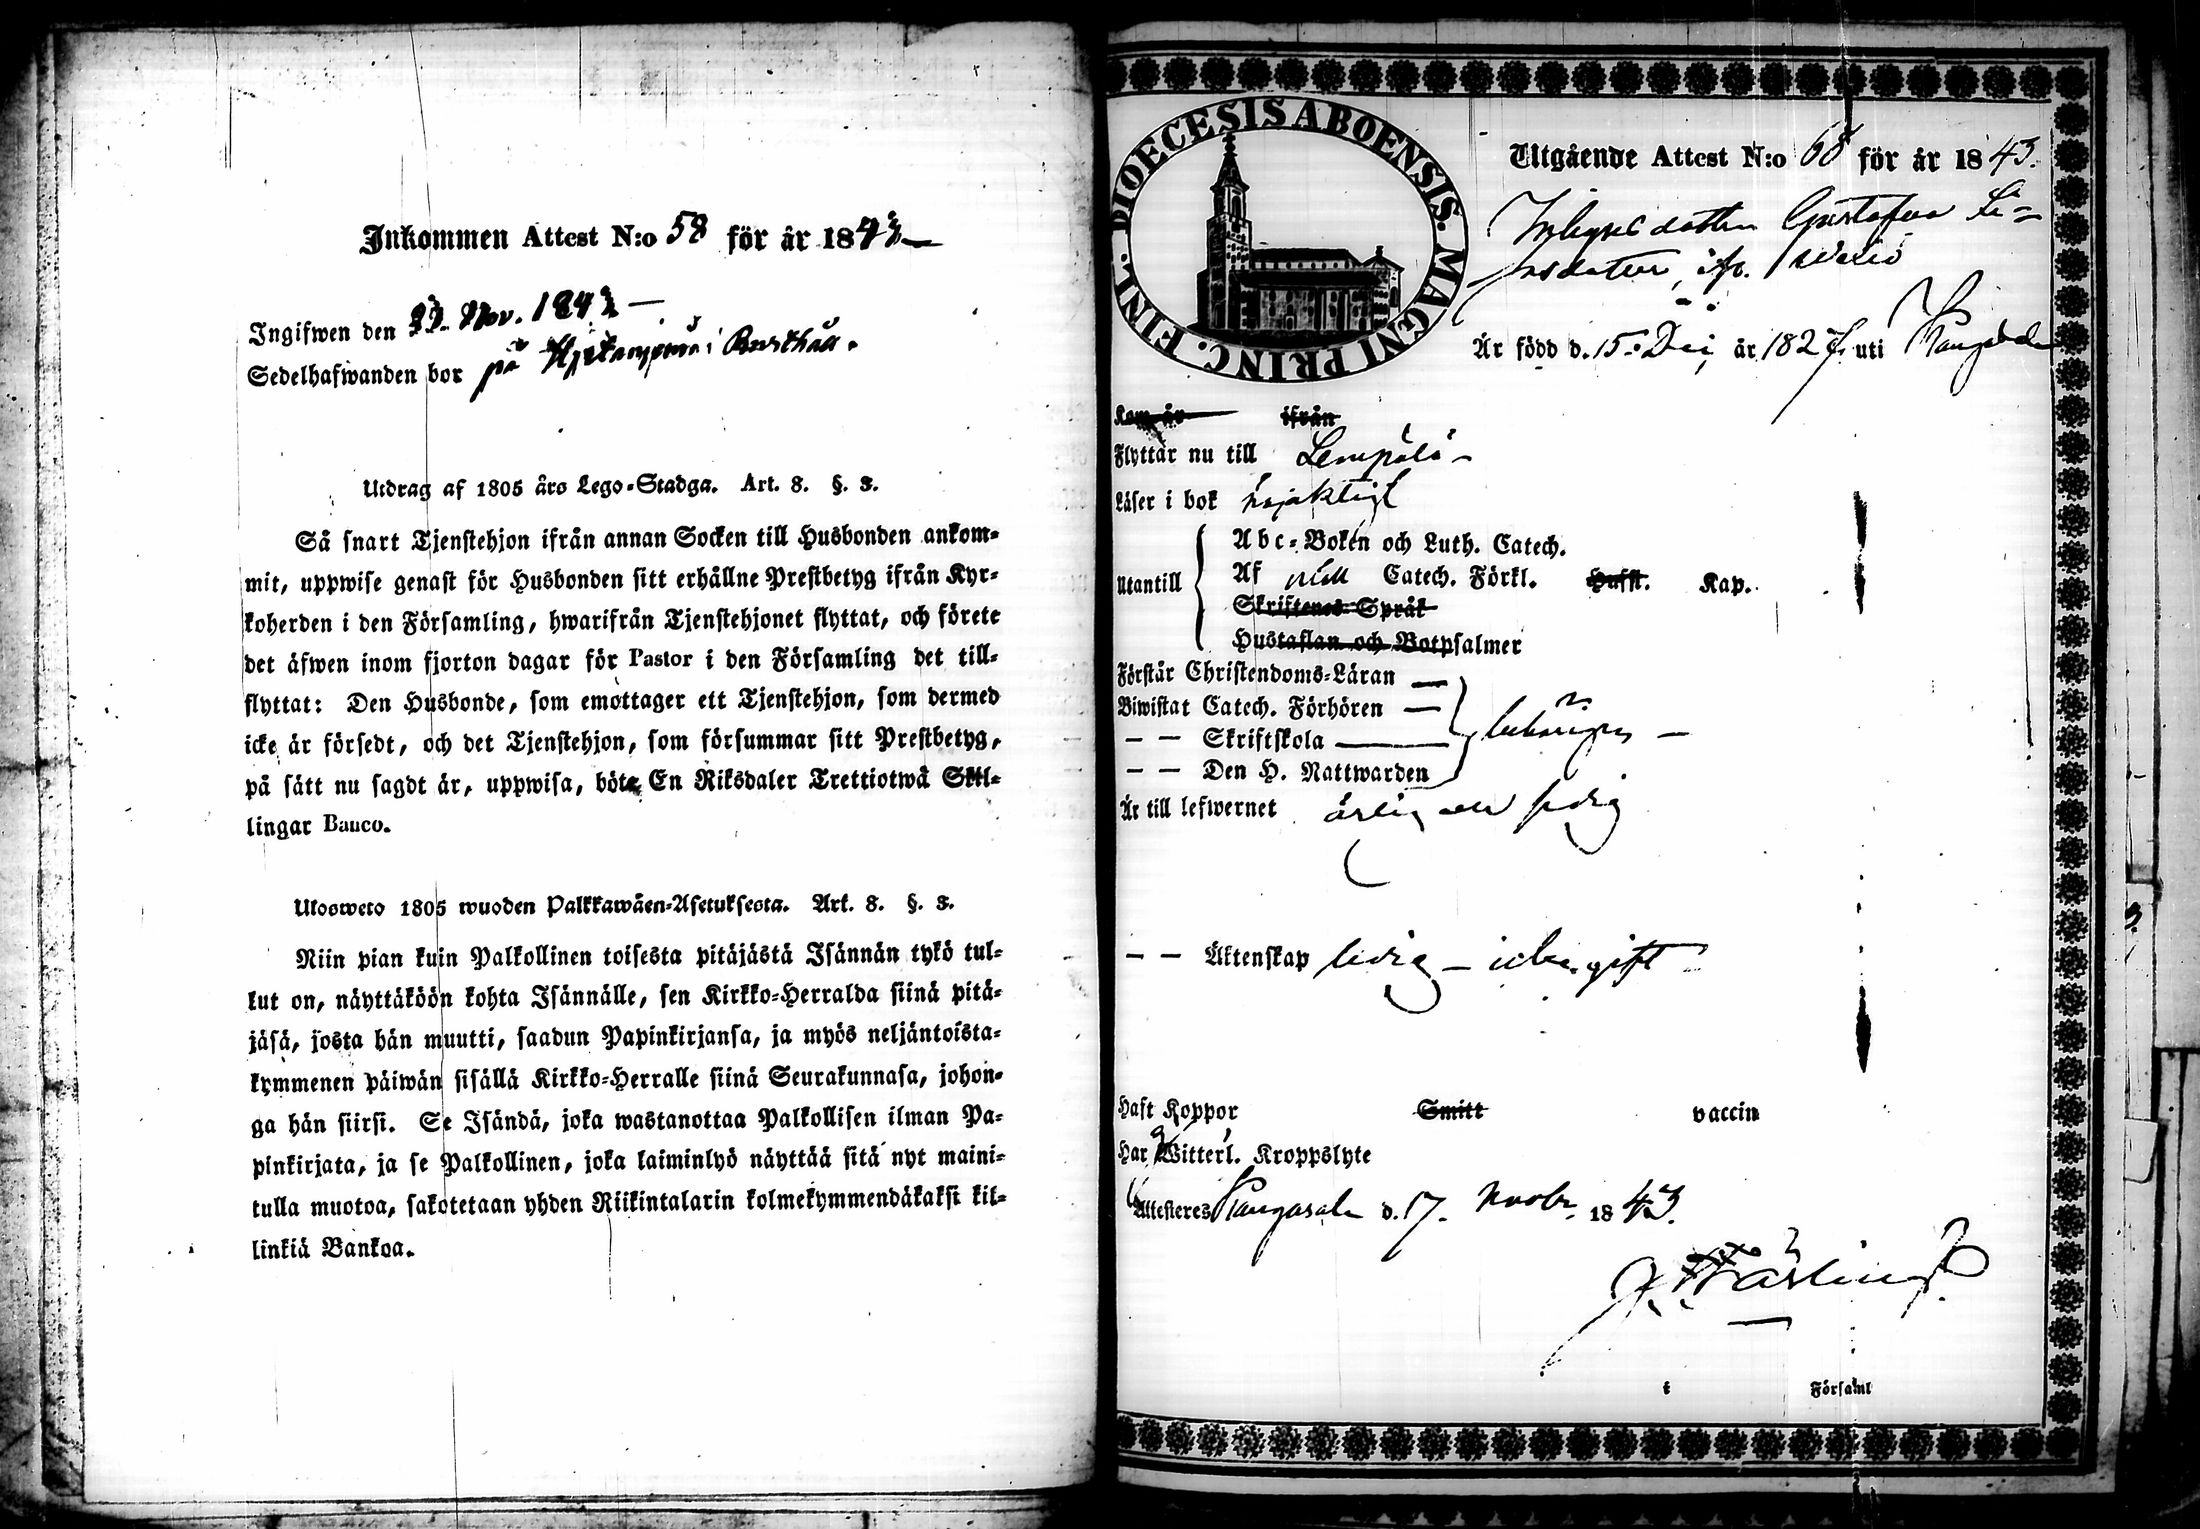 Inkommen Attest N:o 58 för år 1843
Ingifwen den 23. Nov. 1843
Sedelhafwanden bor på i
Utdrag af 1805 års Lego-Stadga. Art. 8. §. 3.
Så snart Tjenstehjon ifrån annan Socken till Husbonden ankom-
mit, uppwise genast för Husbonden sitt erhållne Prestbetyg ifrån Kyr-
koherden i den Församling, hwarifrån Tjenstehjonet flyttat, och förete
det äfwen inom fjorton dagar för Pastor i den Församling det till-
flyttat: Den Husbonde, som emottager ett Tjenstehjon, som dermed
icke är försedt, och det Tjenstehjon, som försummar sitt Prestbetyg,
på sätt nu sagdt är, uppwisa, böte En Riksdaler Trettiotwå Skil-
lingar Banco.
Ulosweto 1805 wuoden Palkkawäen-Asetuksesta. Art. 8. §. 3.
Niin pian kuin Palkollinen toisesta pitäjästä Isännän tykö tul-
lut on, näyttäköön kohta Isännälle, sen Kirkko-Herralda siinä pitä-
jäsä, josta hän muutti, saadun Papinkirjansa, ja myös neljäntoista-
kymmenen päiwän sisällä Kirkko-Herralle siinä Seurakunnasa, johon-
ga hän siirsi. Se Isändä, joka wastanottaa Palkollisen ilman Pa-
pinkirjata, ja se Palkollinen, joka laiminlyö näyttää sitä nyt maini-
tulla muotoa, sakotetaan yhden Riikintalarin kolmekymmendäkaksi kil-
linkiä Bankoa.
DIOECESIS ABOENSIS. MAGNI PRINC. FINL.
Utgående Attest N:o 68 för år 1843.
Inhyses dottren Gustafva
ifr.
Är född d. 15 år 1827 uti Kangasala
Kom år ifrån
Flyttar nu till Lempälä
Läser i bok nöjaktigt
Utantill
Abc-Boken och Luth. Catech.
Af Catech. Förkl. Husst. Kap.
Skriftenes Språk
Hustaflan och Botpsalmer
Förstår Christendoms-Läran
Biwistat Catech. Förhören
— — Skriftskola
— — Den H. Nattwarden
behörigen
Är till lefwernet ärlig och sedig
— — Äktenskap ledig - icke gift
Haft Koppor Smitt vaccin
Har Witterl. Kroppslyte
Attesteres Kangasala d. 17. Novbr 1843.
i Församl